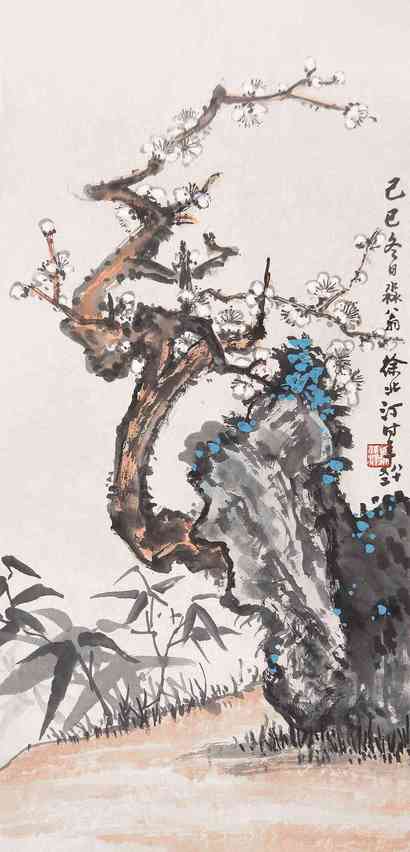 己巳冬日淼翁徐北汀时年八十二